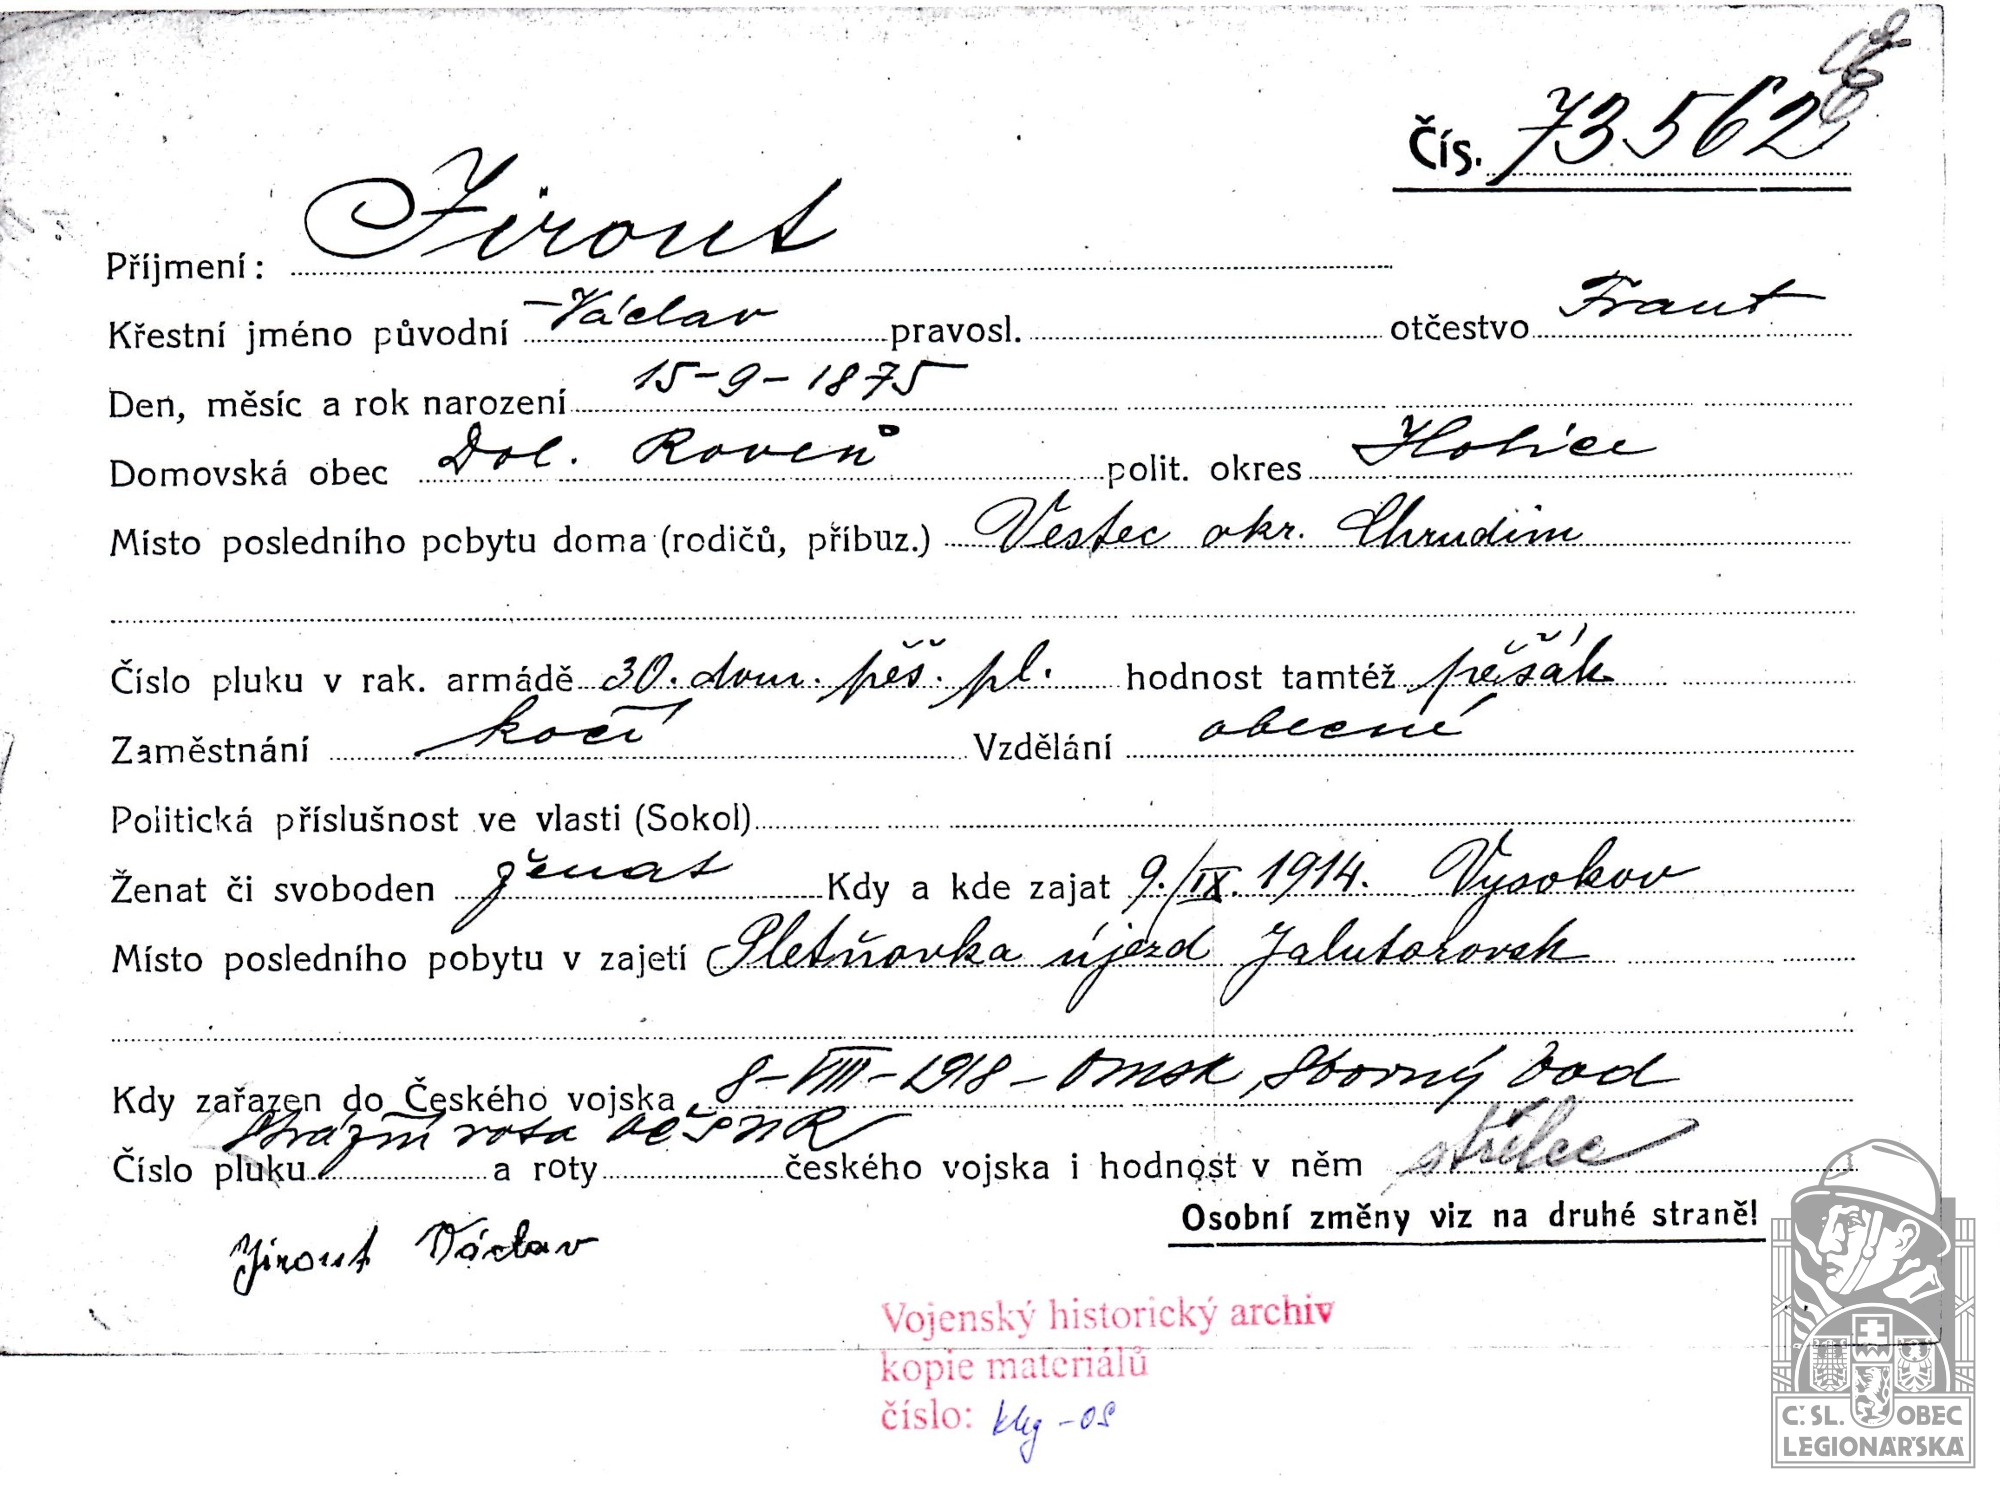 Čís. 73562
Příjmení: Jirout
Křestní jméno původní Václav pravosl. otčestvo Frant
Den, měsíc a rok narození 15-9-1875
Domovská obec Dol. Roveň polit. okres Holice
Místo posledního pobytu doma (rodičů, příbuz.) Vestec okr. Chrudim
Číslo pluku v rak. armádě 30. dom. pěš. pl. hodnost tamtéž pěšák
Zaměstnání kočí Vzdělání obecné
Politická příslušnost ve vlasti (Sokol)
Ženat či svoboden ženat Kdy a kde zajat 9./IX. 1914. Vysokov
Místo posledního pobytu v zajetí Pletňovka újezd Jalutorovsk
Kdy zařazen do Českého vojska 8-VIII-1918-Omsk, Sborný bod
Strážní rota OČSNR
Číslo pluku a roty českého vojska i hodnost v něm střelec
Osobní změny viz na druhé straně!
Jirout Václav
Vojenský historický archiv
kopie materiálů
číslo: kleg-OS
Č. SL. OBEC
LEGIONÁŘSKÁ